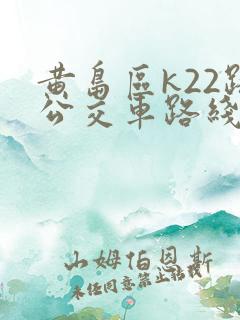 黄島區K22路
公交車路綫
山姆伯恩斯
未经同意禁止转载